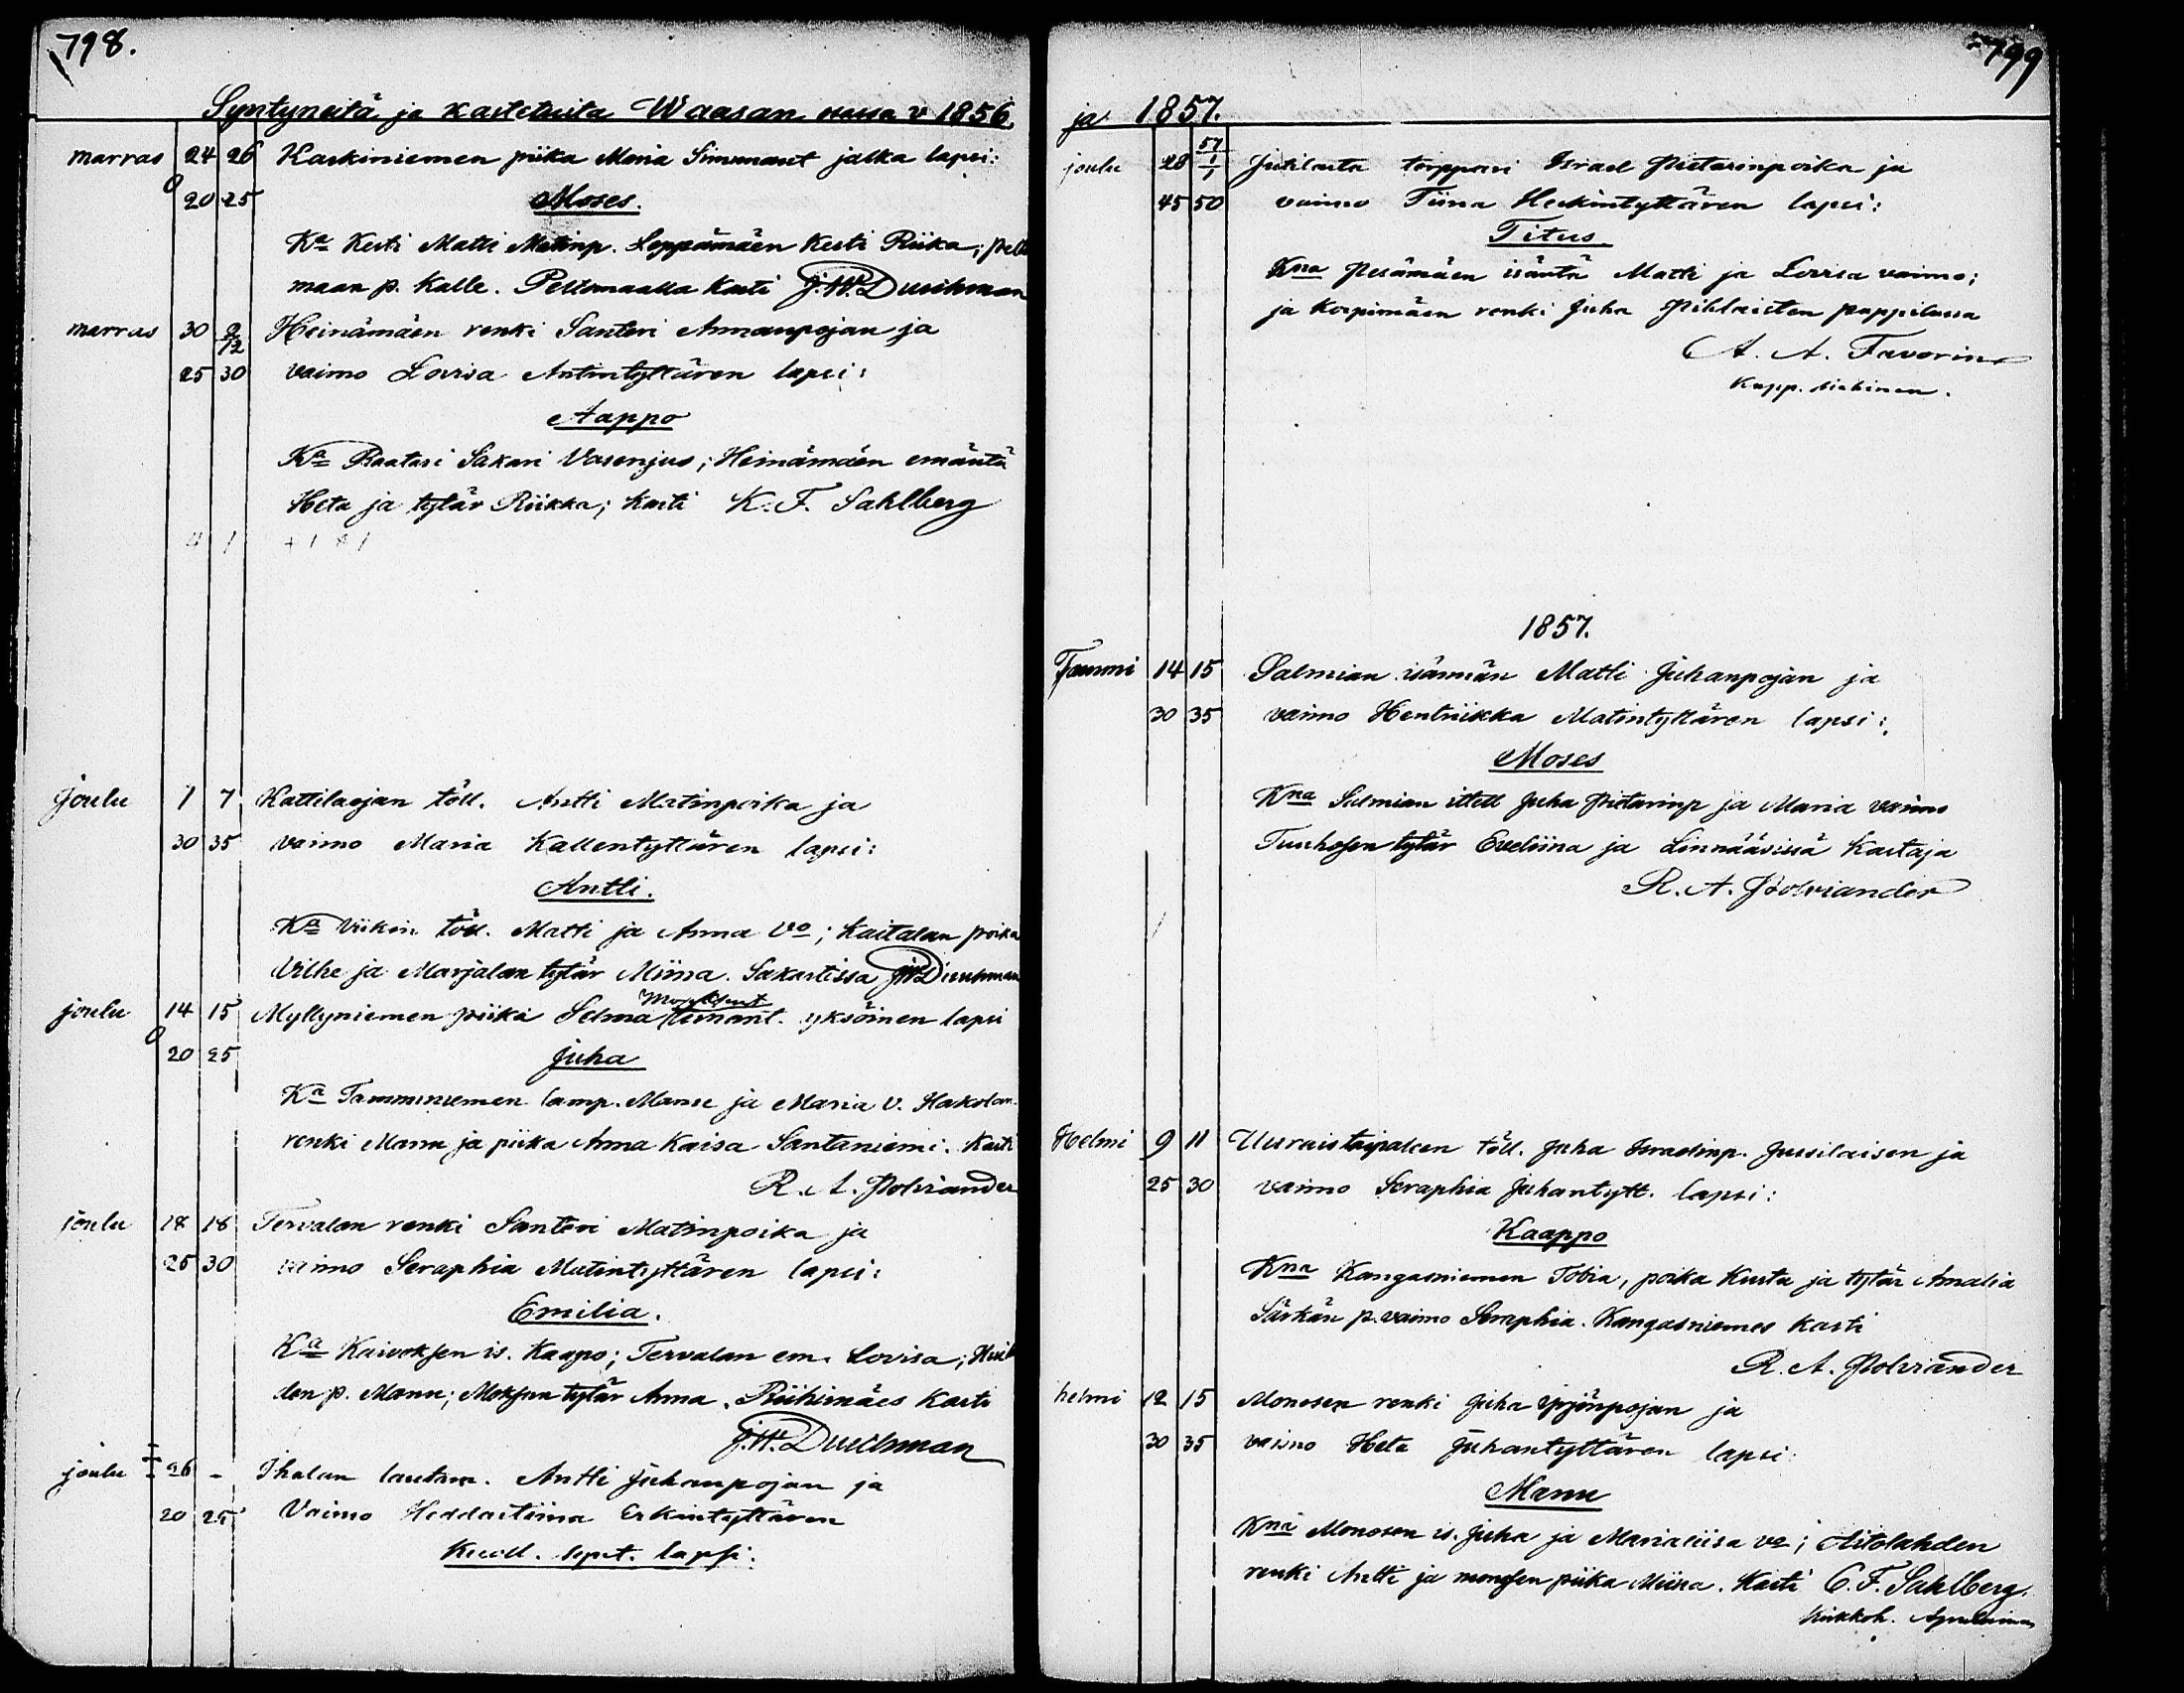 798.
Syntyneitä ja kastetuita Waasan v 1856.
marras 24 26 Karkiniemen piika Maria Simunant jalka lapsi:
20 25 Moses.
Ka Kesti Matti Matinp. Leppämäen Kesti Riika; pelto
maan p. Kalle. Peltomaalla Kasti J.W. Durchman
marras 30 2/12 Heinämäen renki Santeri Annanpojan ja
25 30 vaimo Lovisa Antintyttären lapsi:
Aappo
Ka Raatari Sakari Vasenjus; Heinämäen emäntä
Heta ja tytär Riikka; Kasti K. F. Sahlberg
Joulu 1 7 Kattilaojan töll. Antti Matinpoika ja
30 35 vaimo Maria Kallentyttären lapsi:
Antti.
Ka Viikin töll. Matti ja Anna Vo; Kaitalan poika
Vilhe ja Marjalan tytär Miina. Sakastissa JWDurchman
joulu 14 15 Myllyniemen piika Selma yksöinen lapsi
20 25 Juha
Ka Tamminiemen lamp. Manu ja Maria V. Hakolan
renki Manu ja piika Anna Kaisa Santaniemi. Kasti
R. A. Polviander
joulu 18 18 Tervalan renki Santeri Matinpoika ja
25 30 vaimo Seraphia Matintyttären lapsi:
Emilia.
Ka Kaivoksen is. Kaapo; Tervalan em. Lovisa;
den p. Manu; Moksun tytär Anna. Riihimäes Kasti
J.W. Durchman
joulu 26 - Ihalan lautam. Antti Juhanpojan ja
20 25 Vaimo Heddastiina Erkintyttären
Kuoll. synt. lapsi.
799
ja 1857.
joulu 28 57 1/1 Jutilasta torppari Israel Pietarinpoika ja
45 50 vaimo Tiina Heikintyttären lapsi:
Titus
Kna Pesämäen isäntä Matti ja Lovisa vaimo;
ja Korpimäen renki Juha Pihlaisten pappilassa
A. A. Favorin
Kapp.
1857.
Tammi 14 15 Salmian isännän Matti Juhanpojan ja
30 35 vaimo Hentriikka Matintyttären lapsi:
Moses
Kna Salmian ittell Juha Pietarinp ja Maria vaimo
Tuuhosen tytär Eveliina ja Linnääsissä Kastaja
R. A. Polviander
Helmi 9 11 Uuraistaipaleen töll. Juha Israelinp. Jussilaisen ja
25 30 vaimo Seraphia Juhantytt. lapsi:
Kaappo
Kna Kangasniemen Tobia, poika Kusta ja tytär Amalia
Särkän p. vaimo Seraphia. Kangasniemes kasti
R. A. Polviander
helmi 12 15 Monosen renki Juha Yrjönpojan ja
30 35 vaimo Heta Juhantyttären lapsi:
Manu
Kna Monosen is. Juha ja Marialiisa vo; Aitolahden
renki Antti ja monosen piika Miina. Kasti C. F. Sahlberg.
Kirkkoh. Apulainen